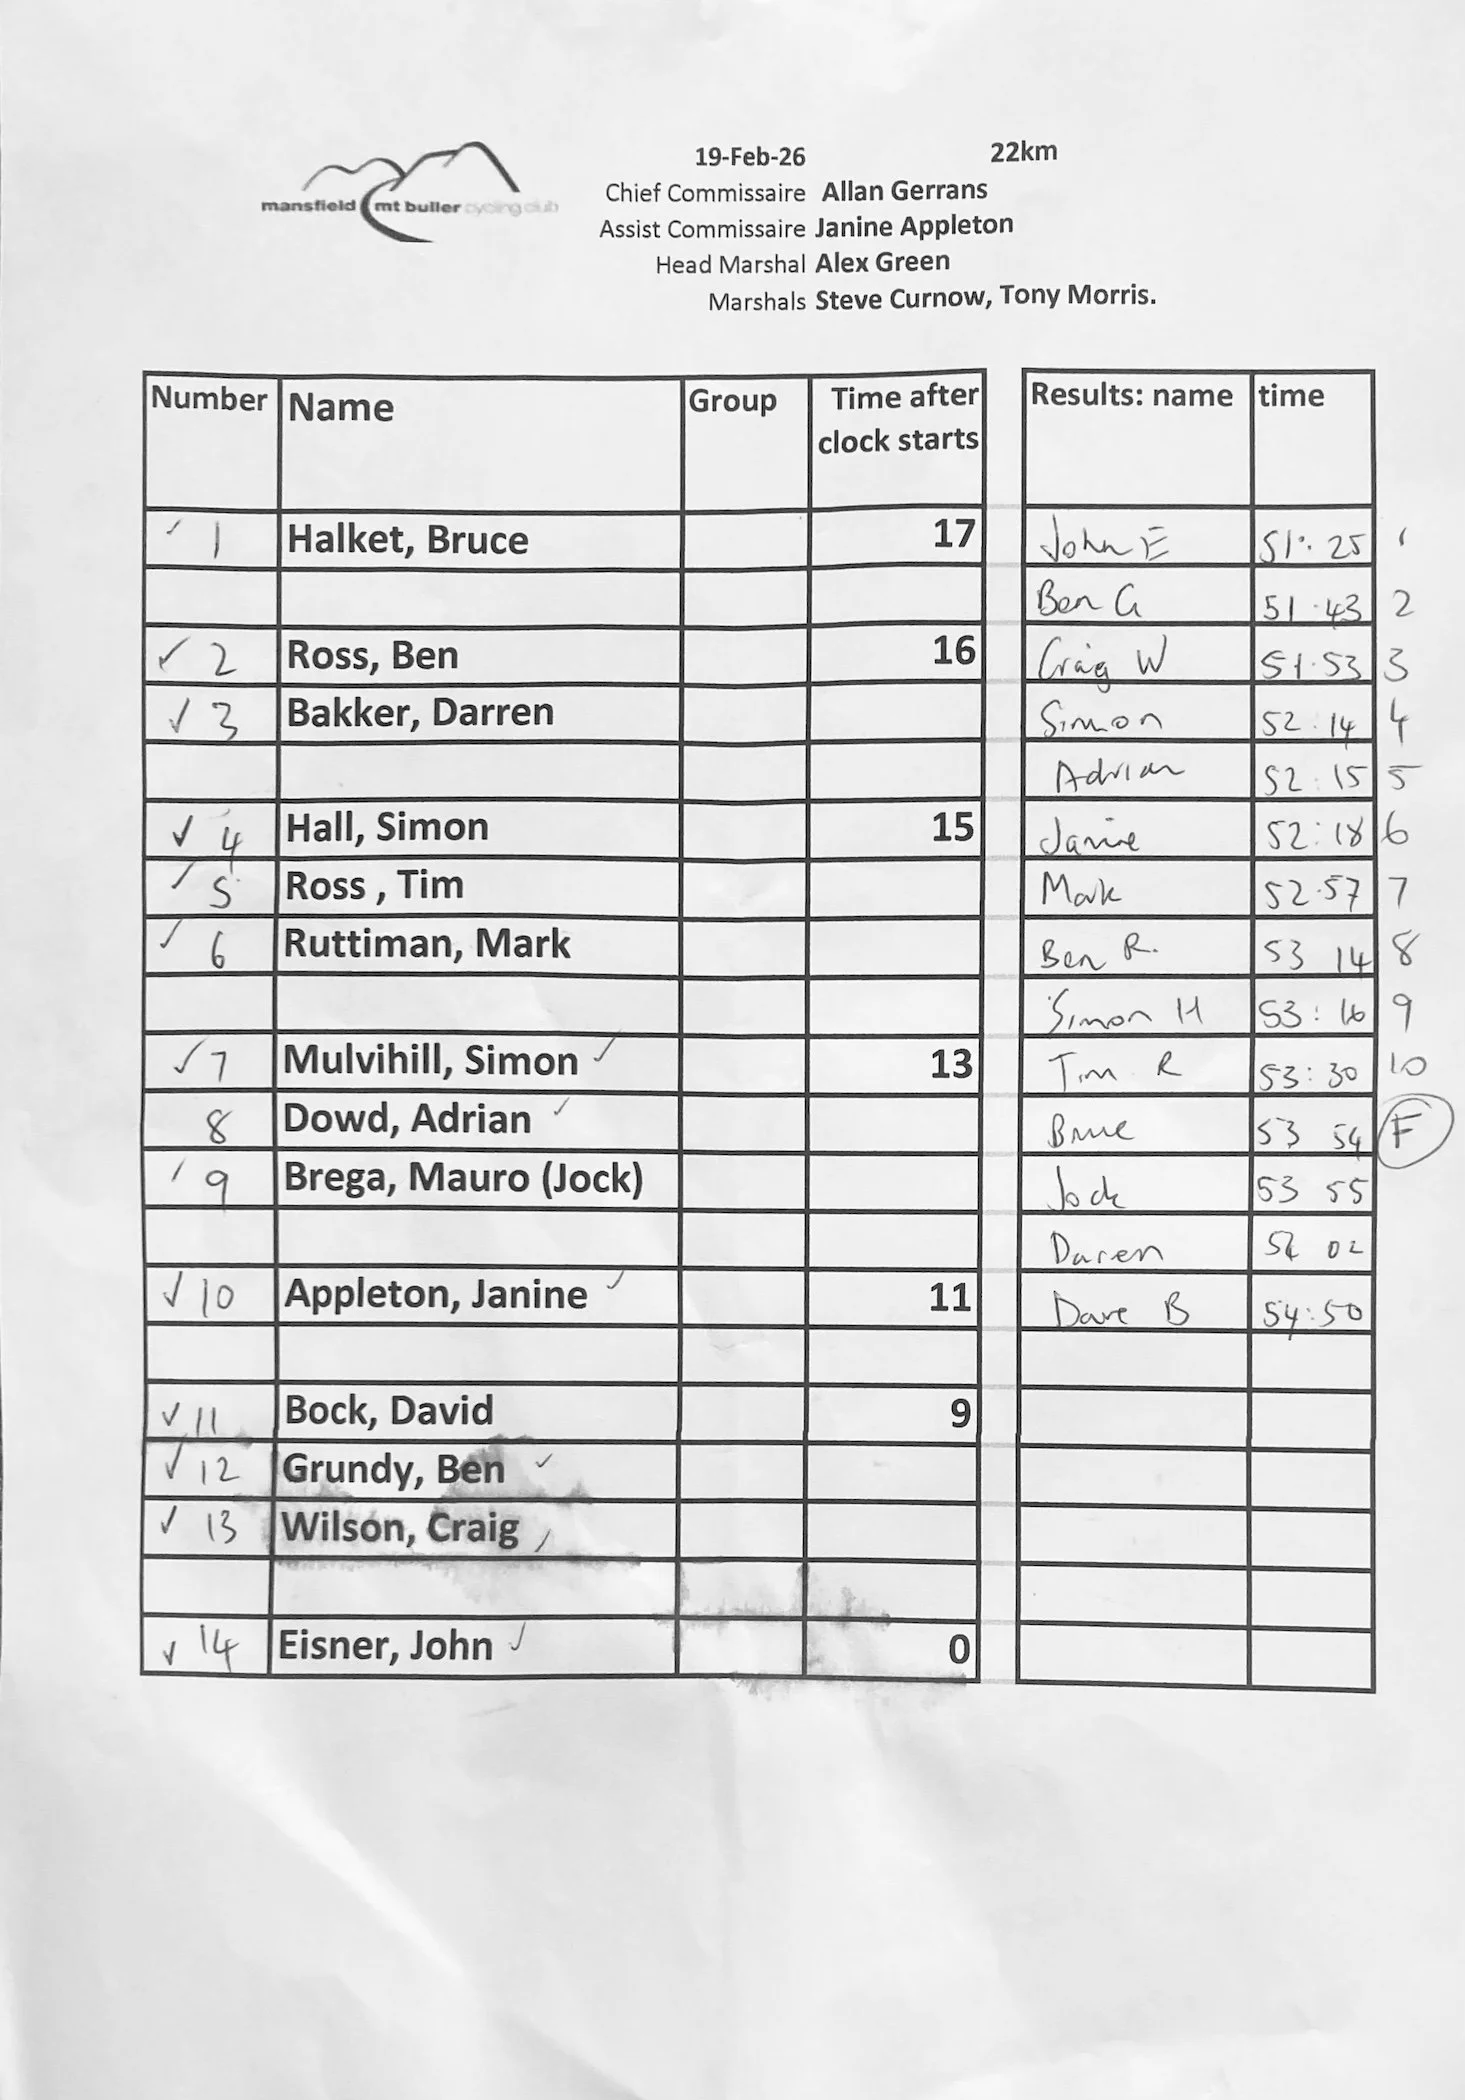 19-Feb-26 22km
mansfield mt buller cycling club
Chief Commissaire Allan Gerrans
Assist Commissaire Janine Appleton
Head Marshal Alex Green
Marshals Steve Curnow, Tony Morris.
Number Name Group Time after clock starts Results: name time
✓ 1 Halket, Bruce 17 John E 51:25 1
Ben G 51:43 2
✓ 2 Ross, Ben 16 Craig W 51.53 3
✓ 3 Bakker, Darren Simon 52:14 4
Adrian 52:15 5
✓ 4 Hall, Simon 15 Janine 52:18 6
✓ 5 Ross , Tim Mark 52.57 7
✓ 6 Ruttiman, Mark Ben R. 53 14 8
Simon H 53:16 9
✓ 7 Mulvihill, Simon ✓ 13 Tim R 53:30 10
8 Dowd, Adrian ✓ Bruce 53 54 F
✓ 9 Brega, Mauro (Jock) Jock 53 55
Darren 54 02
✓ 10 Appleton, Janine ✓ 11 Dave B 54:50
✓ 11 Bock, David 9
✓ 12 Grundy, Ben ✓
✓ 13 Wilson, Craig ✓
✓ 14 Eisner, John ✓ 0